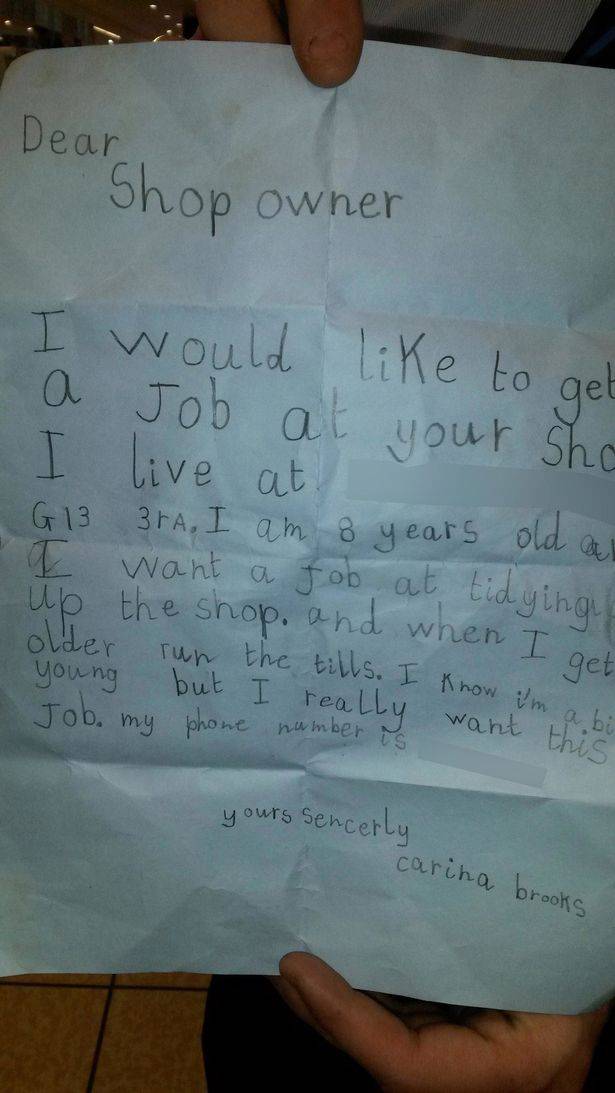 Dear
Shop owner
I would like to get
a Job at your Sho
I live at
G13 3rA. I am 8 years old
I want a Job at tidying
up the shop. and when I get
older run the tills. I Know i'm a bi
young but I really want this
Job. my phone number is
yours sencerly
carina brooks